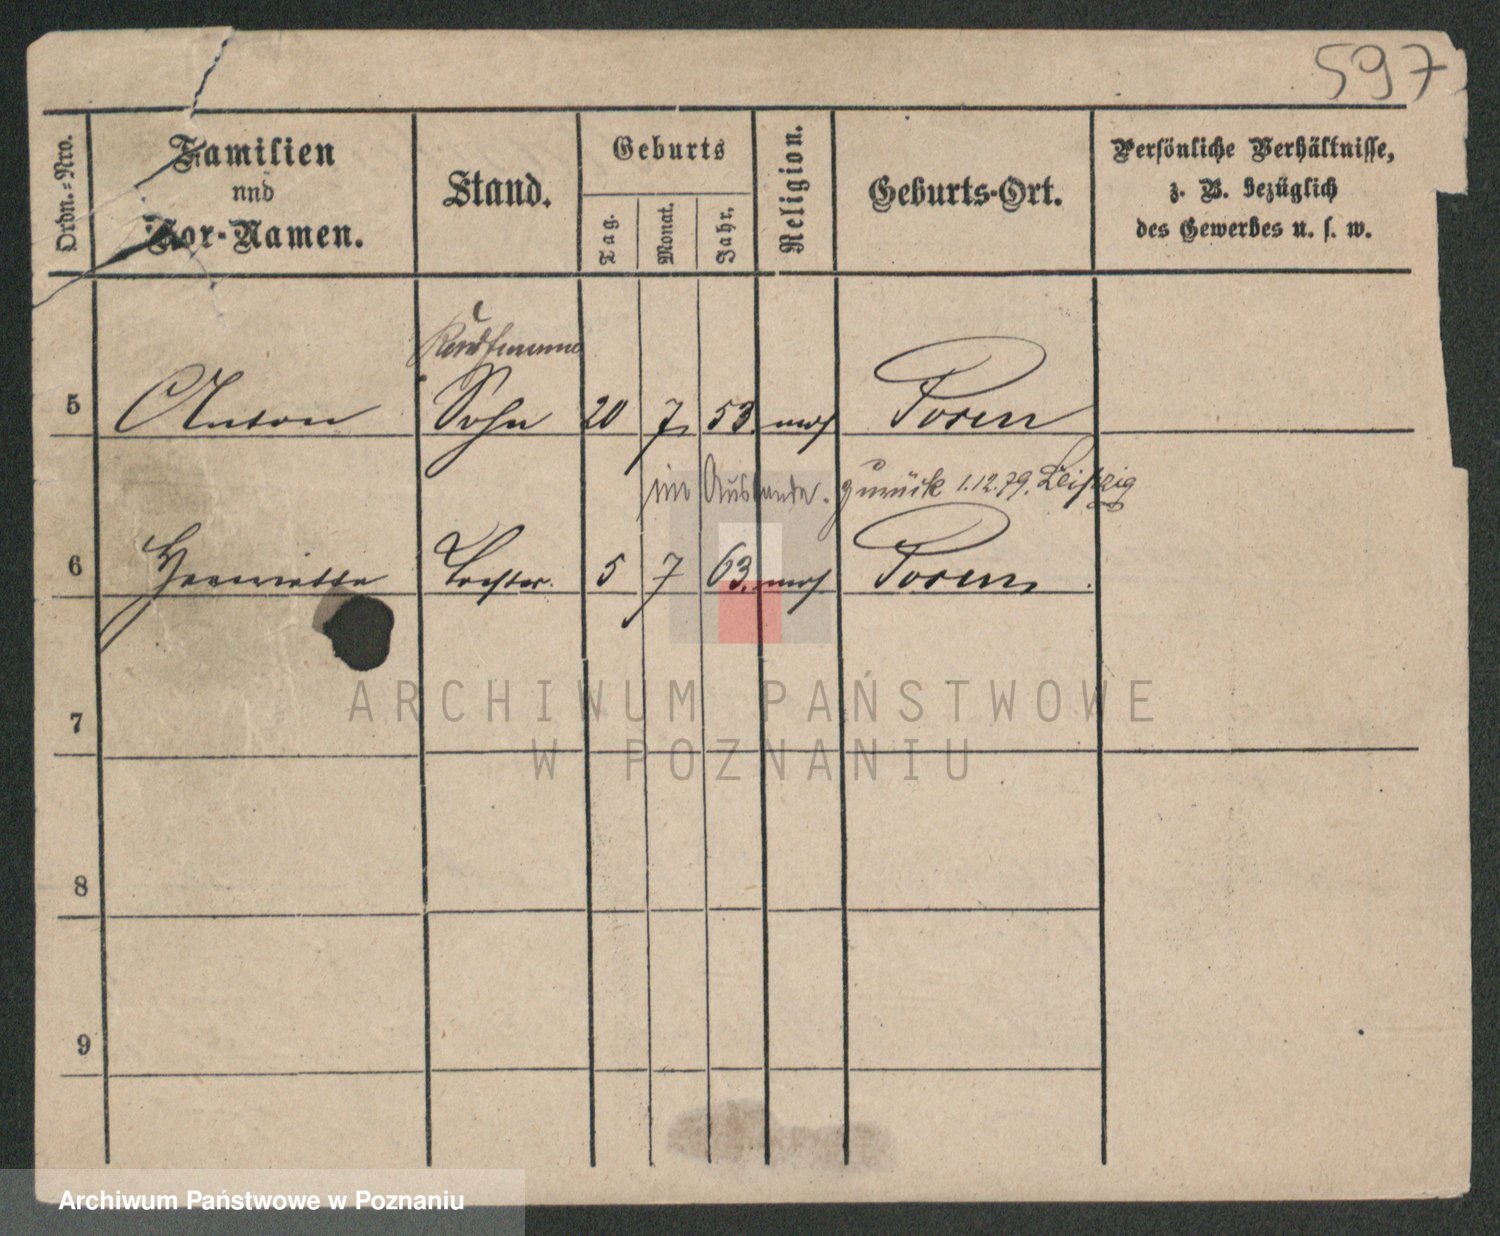 597
Ordn.-Nro.
Familien
und
Vor-Namen.
Stand.
Geburts
Tag.
Monat.
Jahr.
Religion.
Geburts-Ort.
Persönliche Verhältnisse,
z. B. bezüglich
des Gewerbes u. s. w.
Kaufmann
5 Anton Sohn 20 7 53. mos Posen
im Auslande. zurück 1.12.79. Leipzig
6 Henriette Tochter. 5 7 63. mos Posen
ARCHIWUM PAŃSTWOWE
W POZNANIU
7
8
9
Archiwum Państwowe w Poznaniu